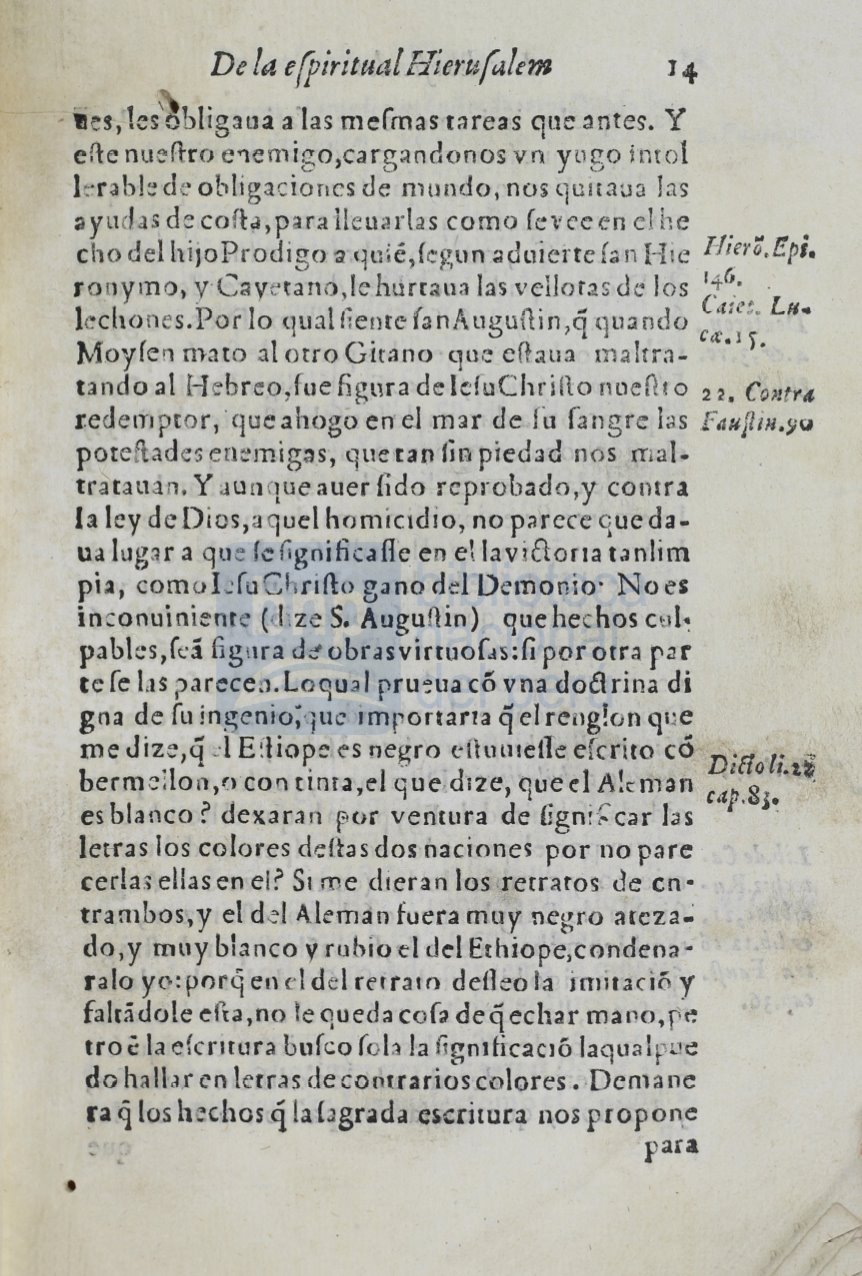 De la eſpiritual Hieruſalem 14
nes, les obligaua a las meſmas tareas que antes. Y
eſte nueſtro enemigo,cargandonos vn yugo intol
lerable de obligaciones de mundo, nos quitaua las
ayudas de coſta,para lleuarlas como ſe vee en el he
cho del hijo Prodigo a quiẽ,ſegun aduierte ſan Hie
ronymo, y Cayetano,le hurtaua las vellotas de los
lechones.Por lo qual ſiente ſan Auguſtin,q̃ quando
Moyſen mato al otro Gitano que eſtaua maltra-
tando al Hebreo,fue figura de Ieſu Chriſto nueſtro
redemptor, que ahogo en el mar de ſu ſangre las
poteſtades enemigas, que tan ſin piedad nos mal-
tratauan. Y aunque auer ſido reprobado,y contra
la ley de Dios,aquel homicidio, no parece que da-
ua lugar a que ſe ſignificaſſe en el la victoria tan lim
pia, como Ieſu Chriſto gano del Demonio· No es
inconuiniente (dize S. Auguſtin) que hechos cul-
pables,ſeã figura de obras virtuoſas:ſi por otra par
te ſe las parecen.Lo qual prueua cõ vna doctrina di
gna de ſu ingenio, que importaria q̃ el renglon que
me dize,q̃ el Etiope es negro eſtuuieſſe eſcrito cõ
bermellon,o con tinta,el que dize, que el Aleman
es blanco? dexaran por ventura de ſignificar las
letras los colores deſtas dos naciones por no pare
cerlas ellas en el? Si me dieran los retratos de en-
trambos,y el del Aleman fuera muy negro ateza-
do,y muy blanco y rubio el del Ethiope,condena-
ralo yo:porq̃ en el del retrato deſſeo la imitaciõ y
faltãdole eſta,no le queda coſa de q̃ echar mano,pe
tro ẽ la eſcritura buſco ſola la ſignificaciõ la qual pue
do hallar en letras de contrarios colores. De mane
ra q̃ los hechos q̃ la ſagrada escritura nos propone
para
Hierõ.Epi.
146.
Caiet. Lu-
cæ.15.
22. Contra
Fauſtin.70
Dicto li.22
cap.83.